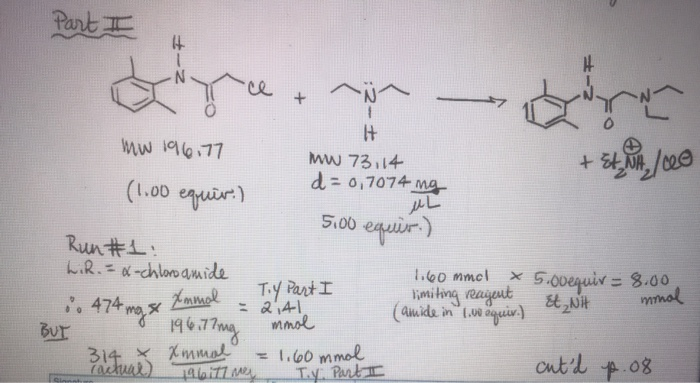 Part II
H
N
Cl
O
+
N
H
H
N
N
O
MW 196.77
(1.00 equiv.)
MW 73.14
d = 0.7074 mg
µL
5.00 equiv.)
+ Et2NH2 ⊕/Cl⊖
Run #1:
L.R. = α-chloroamide
∴ 474 mg x 1 mmol / 196.77 mg = T.Y Part I 2.41 mmol
BUT
314 (actual) x 1 mmol / 196.77 mg = 1.60 mmol T.Y. Part II
1.60 mmol x 5.00 equiv = 8.00 mmol
limiting reagent Et2NH
(amide in 1.00 equiv.)
cnt'd p.08